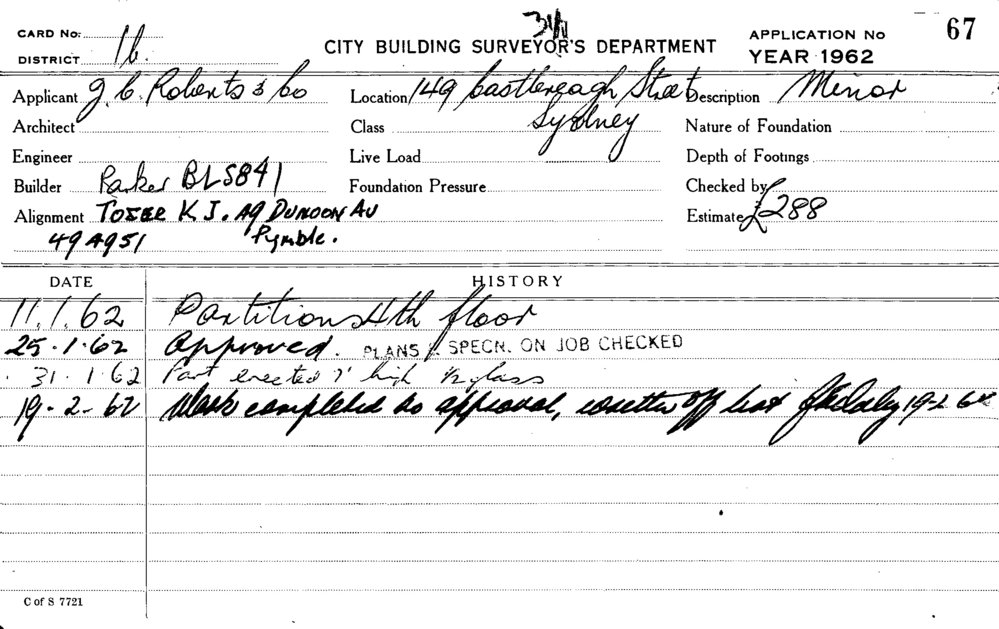 31/1
CARD No: CITY BUILDING SURVEYOR'S DEPARTMENT APPLICATION No 67
DISTRICT 1b. YEAR 1962
Applicant J. C. Roberts & Co Location 149 Castlereagh Street Description Minor
Architect Class Sydney Nature of Foundation
Engineer Live Load Depth of Footings
Builder Parker BLS841 Foundation Pressure Checked by
Alignment TOZER K J. 49 DUNOON AV Estimate £288
49 4951 Pymble.
DATE HISTORY
11.1.62 Partitions 4th floor
25.1.62 Approved. PLANS & SPECN. ON JOB CHECKED
31.1.62 Part erected 7' high ½ glass
19-2-62 Work completed as approval, off list 19-2 62
C of S 7721